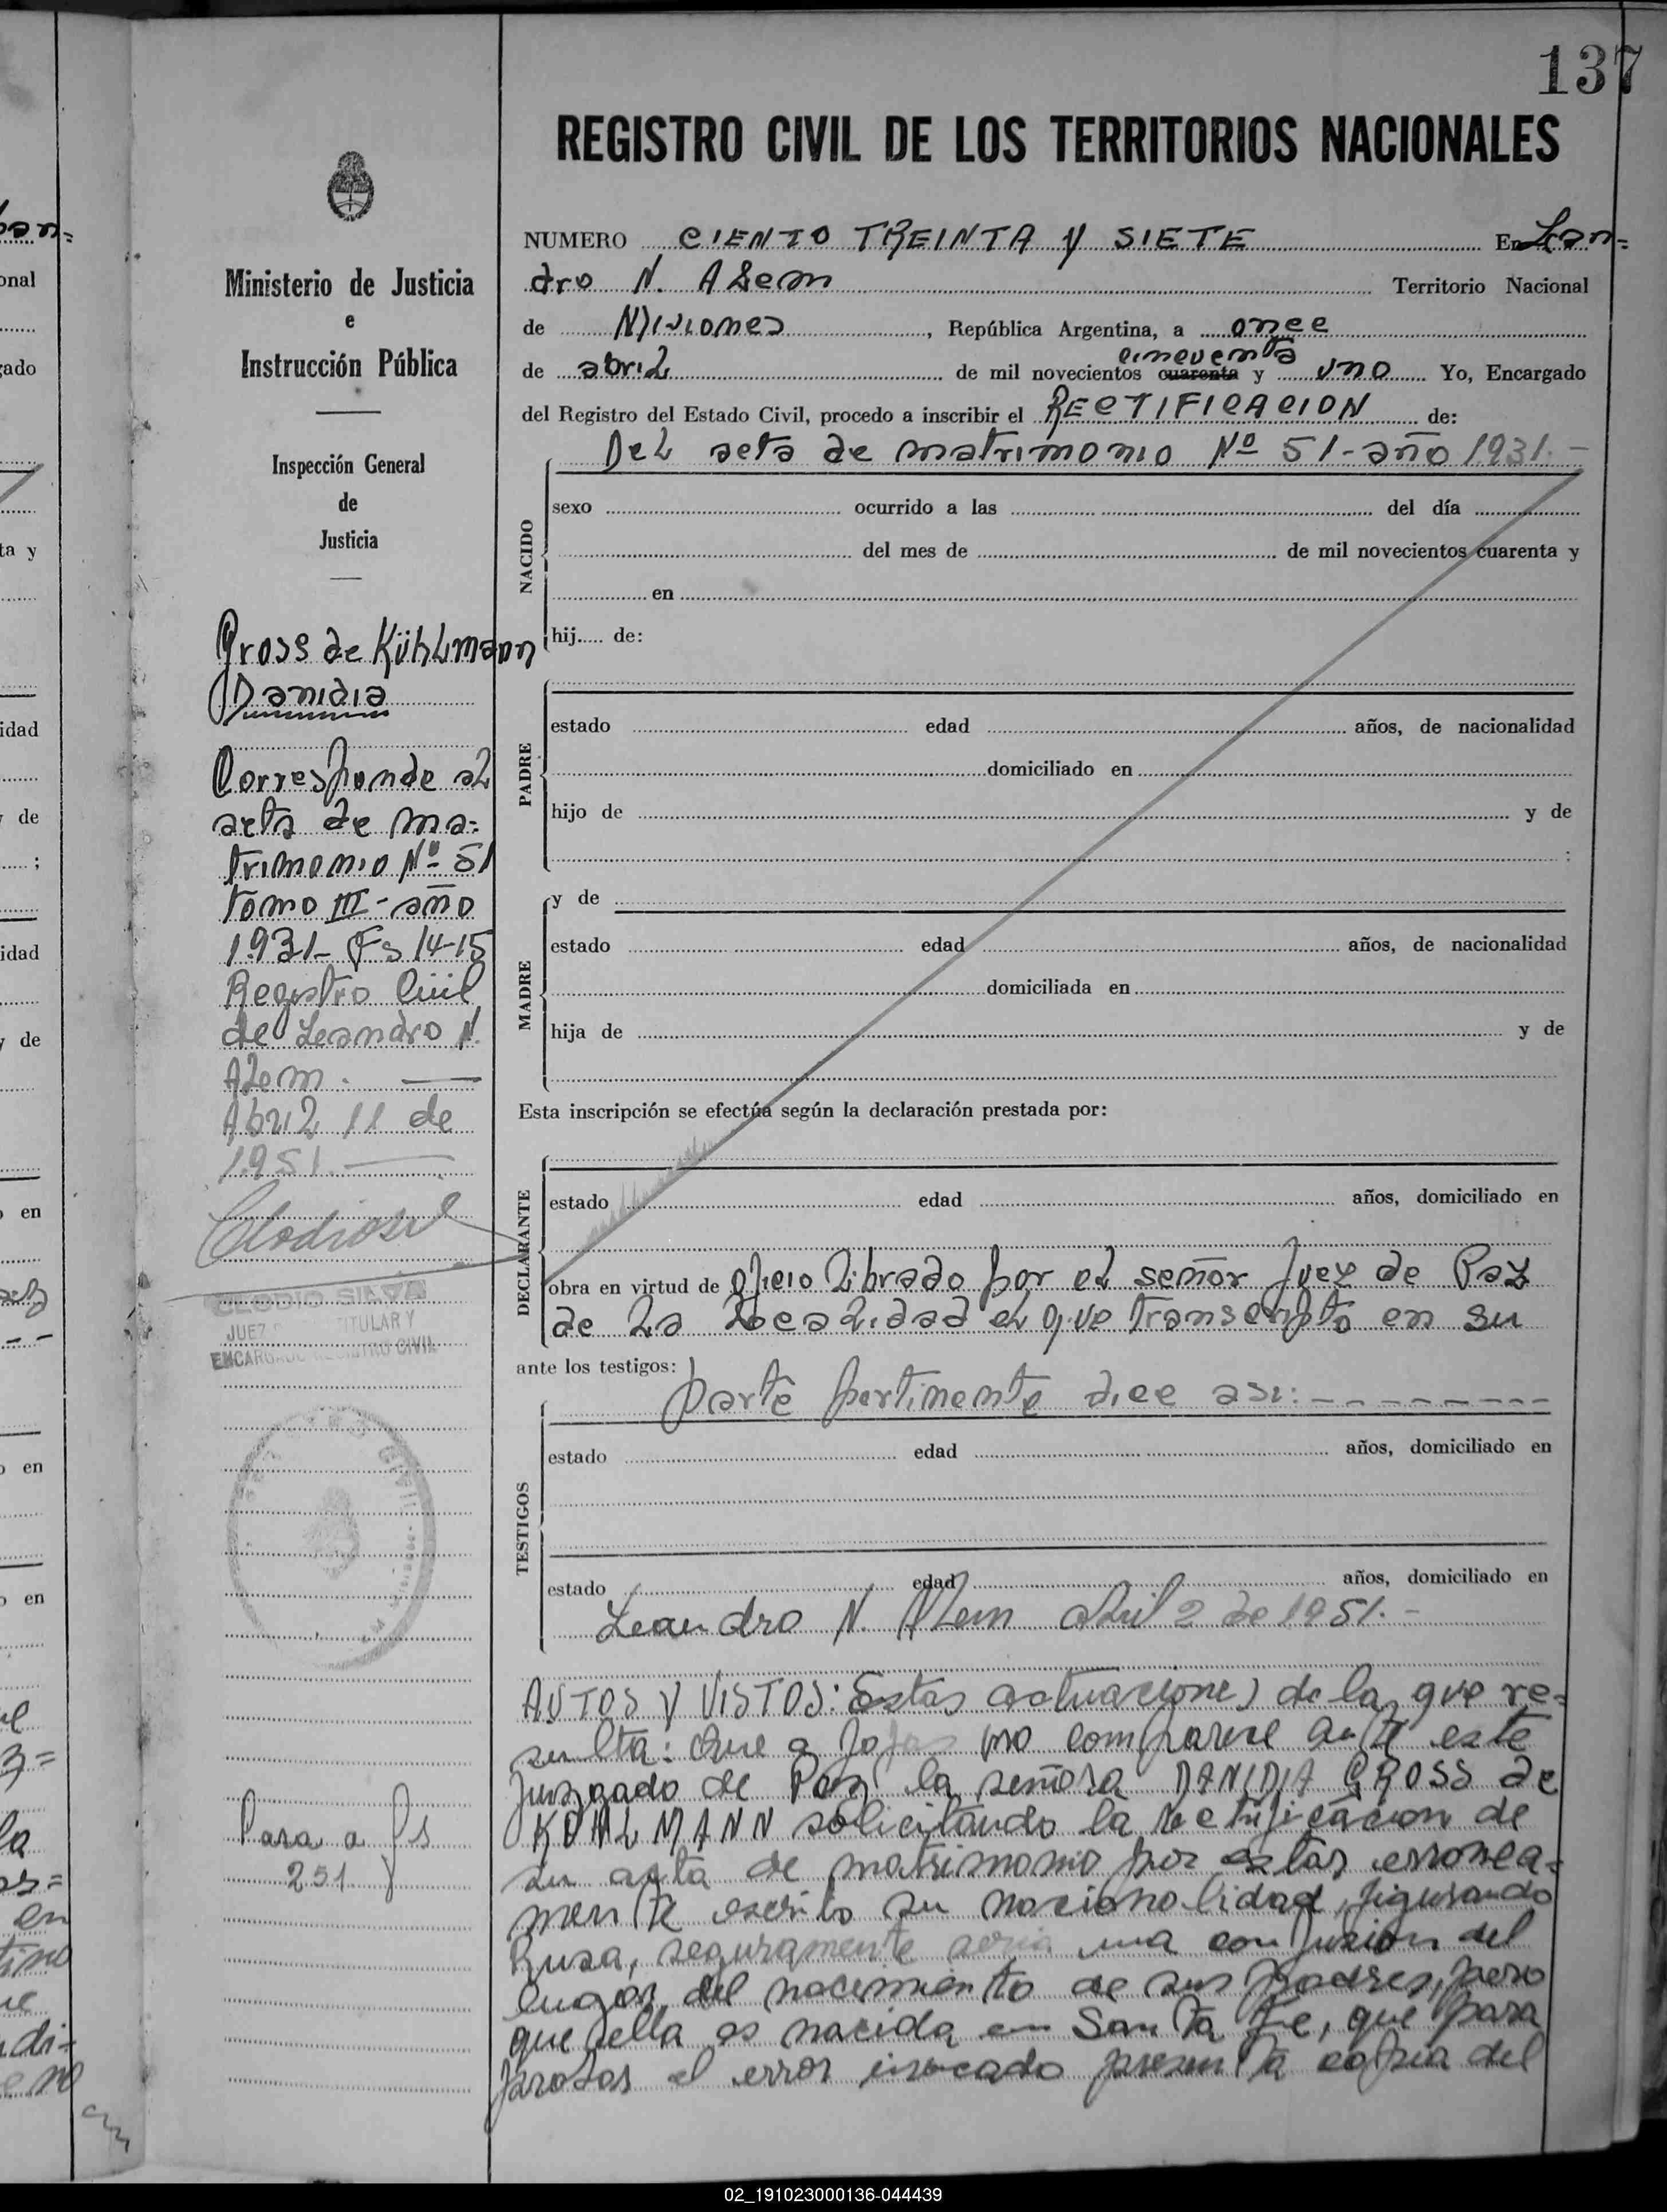 137
REGISTRO CIVIL DE LOS TERRITORIOS NACIONALES
NUMERO CIENTO TREINTA Y SIETE En Lean=
dro N. Alem Territorio Nacional
de Misiones, República Argentina, a once
de abril de mil novecientos cuarenta cincuenta y uno Yo, Encargado
del Registro del Estado Civil, procedo a inscribir el RECTIFICACION de:
Del acta de matrimonio Nº 51-año 1931.-
NACIDO
sexo ocurrido a las del día
del mes de de mil novecientos cuarenta y
en
hij..... de:
PADRE
estado edad años, de nacionalidad
domiciliado en
hijo de y de
:
MADRE
y de
estado edad años, de nacionalidad
domiciliada en
hija de y de
Esta inscripción se efectúa según la declaración prestada por:
DECLARANTE
estado edad años, domiciliado en
obra en virtud de oficio librado por el señor Juez de Paz
de la localidad el que transcripto en su
ante los testigos:
parte pertinente dice asi: - - - - - - - -
TESTIGOS
estado edad años, domiciliado en
estado edad años, domiciliado en
Leandro N. Alem abril 2 de 1951.-
AUTOS Y VISTOS: Estas actuaciones de la que re=
sulta: Que a fojas uno comparece ante este
Juzgado de Paz la señora DANIDIA GROSS de
KÜHLMANN solicitando la rectificacion de
su acta de matrimonio por estar erronea=
mente escrito su nacionalidad, figurando
Rusa, seguramente seria una confusion del
lugar del nacimiento de sus padres, pero
que ella es nacida en Santa Fe, que para
probar el error invocado presenta copia del
Ministerio de Justicia
e
Instrucción Pública
Inspección General
de
Justicia
Gross de Kühlmann
Danidia
Corresponde al
acta de ma=
trimonio Nº 51
tomo III - año
1.931- Fs 14-15
Registro Civil
de Leandro N.
Alem. —
Abril 11 de
1.951. —
CLODIO SILVA
JUEZ TITULAR Y
ENCARGADO REGISTRO CIVIL
Pasa a fs
251
02_191023000136-044439